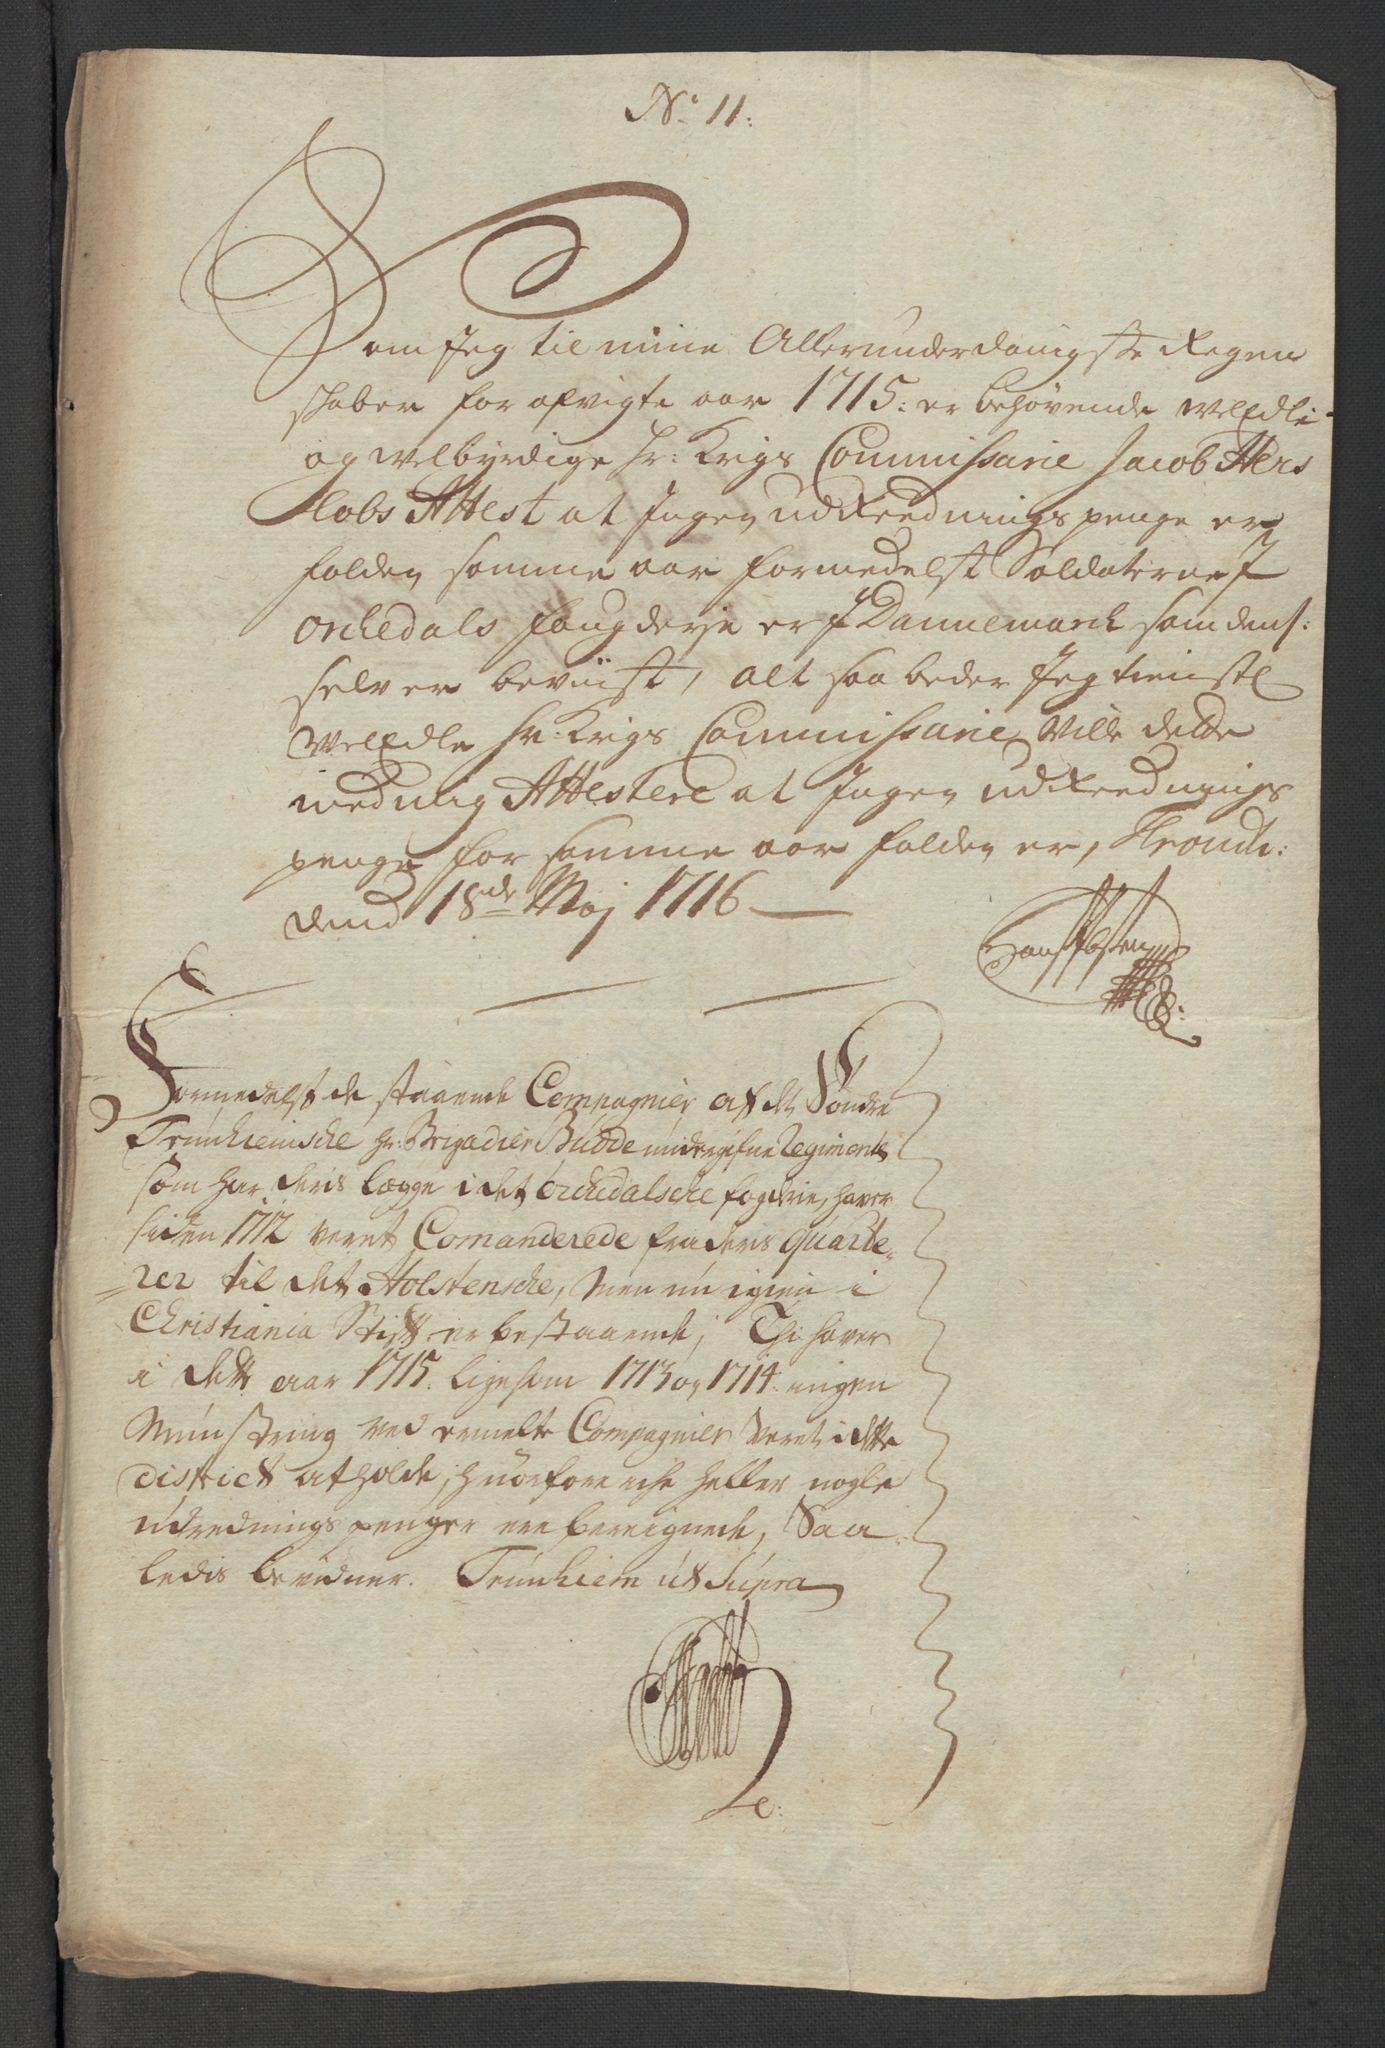 No 11:
Som Jeg til mine Allerunderdanigste Regen
skaber for afvigte aar 1715: er behøvende WelEdle
og Welbyrdige Hr: Krigs Commissarie Jacob Hers
lobs Attest at Ingen udReednings penge er
falden samme aar formedelst Soldaterne I
Orchedals fougderje er J Dannemarch som dem
selv er beviist, alt saa beder Jeg tienstl
WelEdle Hr: Krigs Commissarie Ville dette
med mig Attestere at Ingen udReednings
penge for samme aar falden er, Trondh:
dend 18de Maj 1716
Formedelst de staaende Compagnier af det Søndre
Trünhiemsche Hr: Brigadier Büdde underգifne Regimente
som har deris lægge i det Orchedalsche fogderie, haver
siden 1712 veret Comanderede fra deris quarte-
rer til det Holstensche, Men nu igien i
Christiania Stift er bestaaende; Thi haver
i dette aar 1715. ligesom 1713 og 1714. ingen
Münstring ved ermelte Compagnier veret i dette
district at holde; hvorfore iche heller nogle
üdrednings penger ere beregnede, Saa-
ledis bevidner. Trünhiem üt Supra